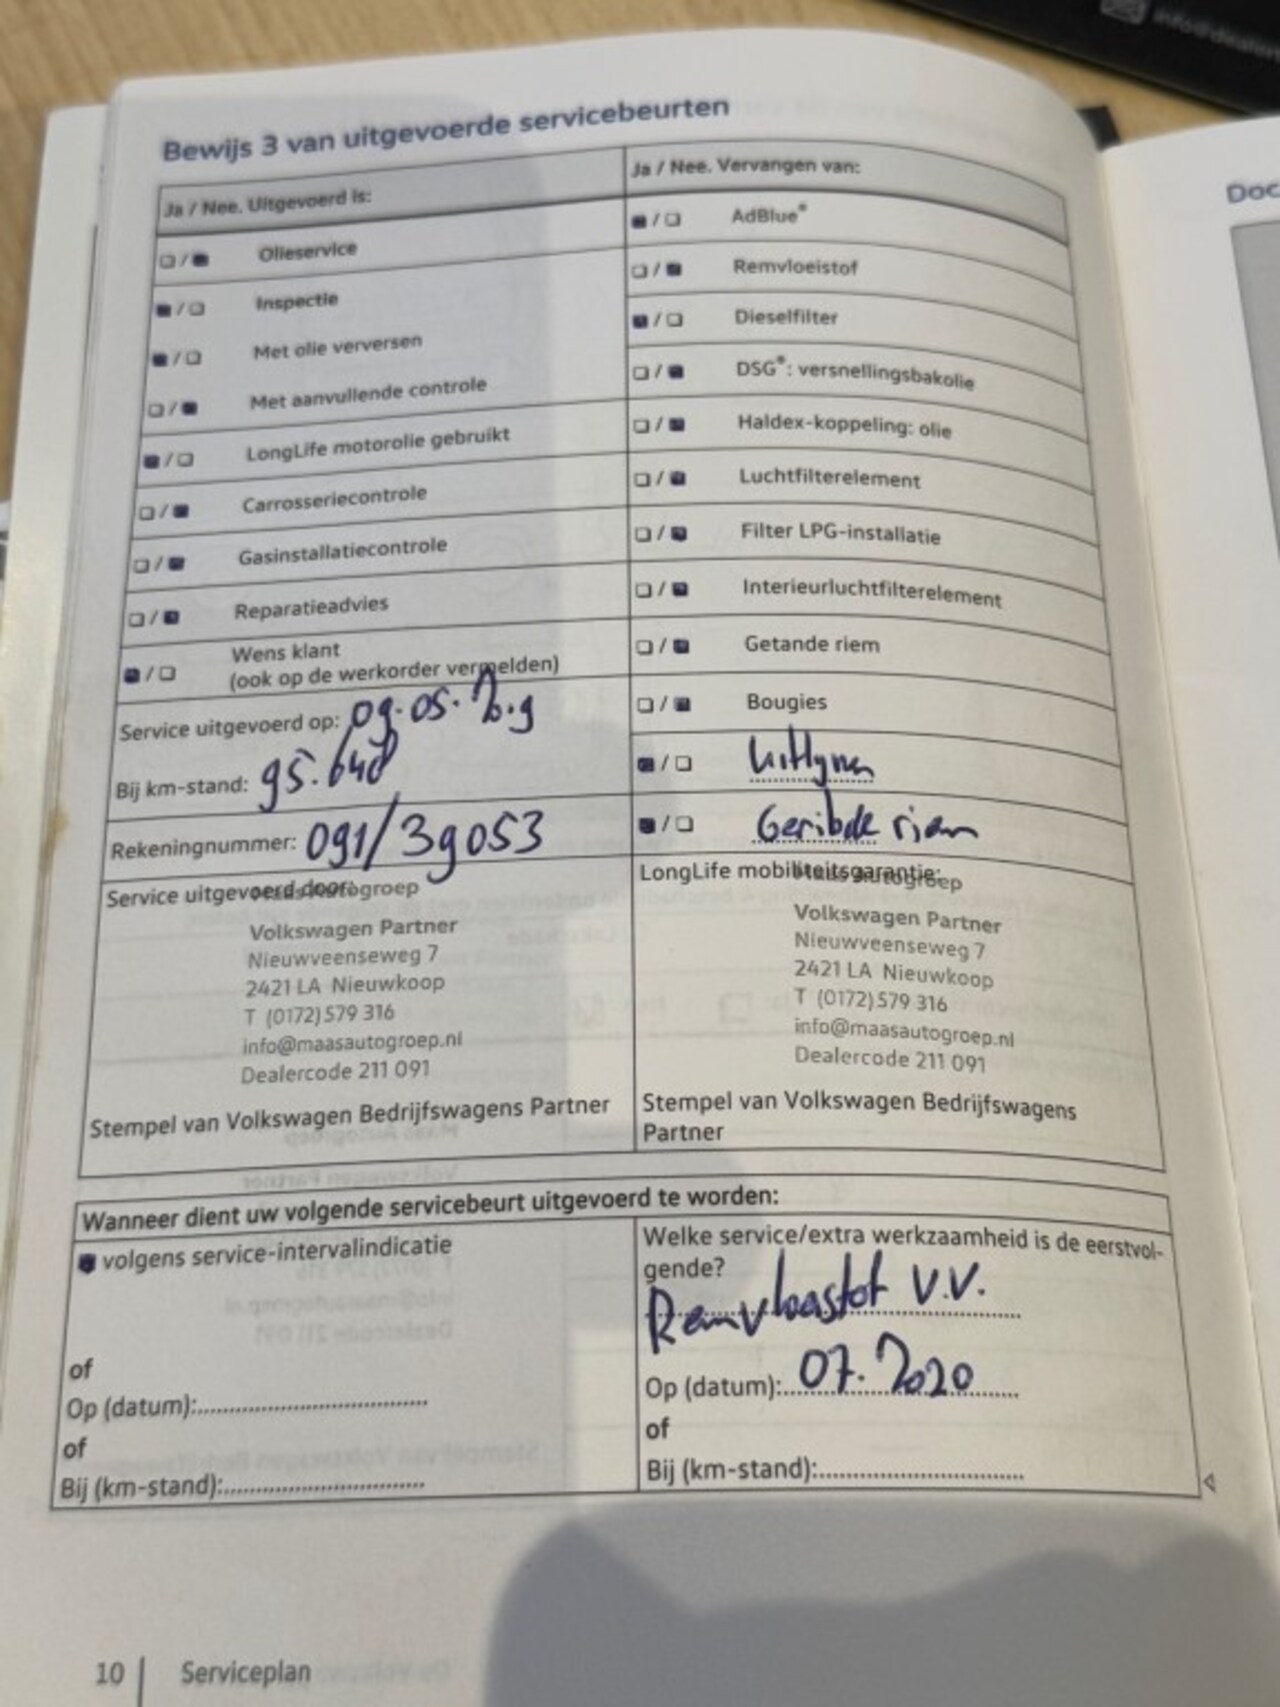 Bewijs 3 van uitgevoerde servicebeurten
Ja / Nee. Uitgevoerd is:
Olieservice
Inspectie
Met olie verversen
Met aanvullende controle
LongLife motorolie gebruikt
Carrosseriecontrole
Gasinstallatiecontrole
Reparatieadvies
Wens klant
(ook op de werkorder vermelden)
Service uitgevoerd op: 09.05.2019
Bij km-stand: 95.648
Rekeningnummer: 091/39053
Service uitgevoerd door:
Maas Autogroep
Volkswagen Partner
Nieuwveenseweg 7
2421 LA Nieuwkoop
T (0172) 579 316
info@maasautogroep.nl
Dealercode 211 091
Stempel van Volkswagen Bedrijfswagens Partner
Ja / Nee. Vervangen van:
AdBlue®
Remvloeistof
Dieselfilter
DSG®: versnellingsbakolie
Haldex-koppeling: olie
Luchtfilterelement
Filter LPG-installatie
Interieurluchtfilterelement
Getande riem
Bougies
Uitlynen
Geribde riem
LongLife mobiliteitsgarantie:
Maas Autogroep
Volkswagen Partner
Nieuwveenseweg 7
2421 LA Nieuwkoop
T (0172) 579 316
info@maasautogroep.nl
Dealercode 211 091
Stempel van Volkswagen Bedrijfswagens
Partner
Wanneer dient uw volgende servicebeurt uitgevoerd te worden:
volgens service-intervalindicatie
of
Op (datum):
of
Bij (km-stand):
Welke service/extra werkzaamheid is de eerstvol-
gende?
Remvloeistof V.V.
Op (datum): 07.2020
of
Bij (km-stand):
10 Serviceplan
Doc